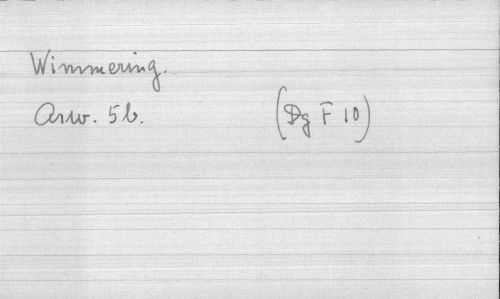 Wimmering.
Arw. 5b. (Dg F 10)